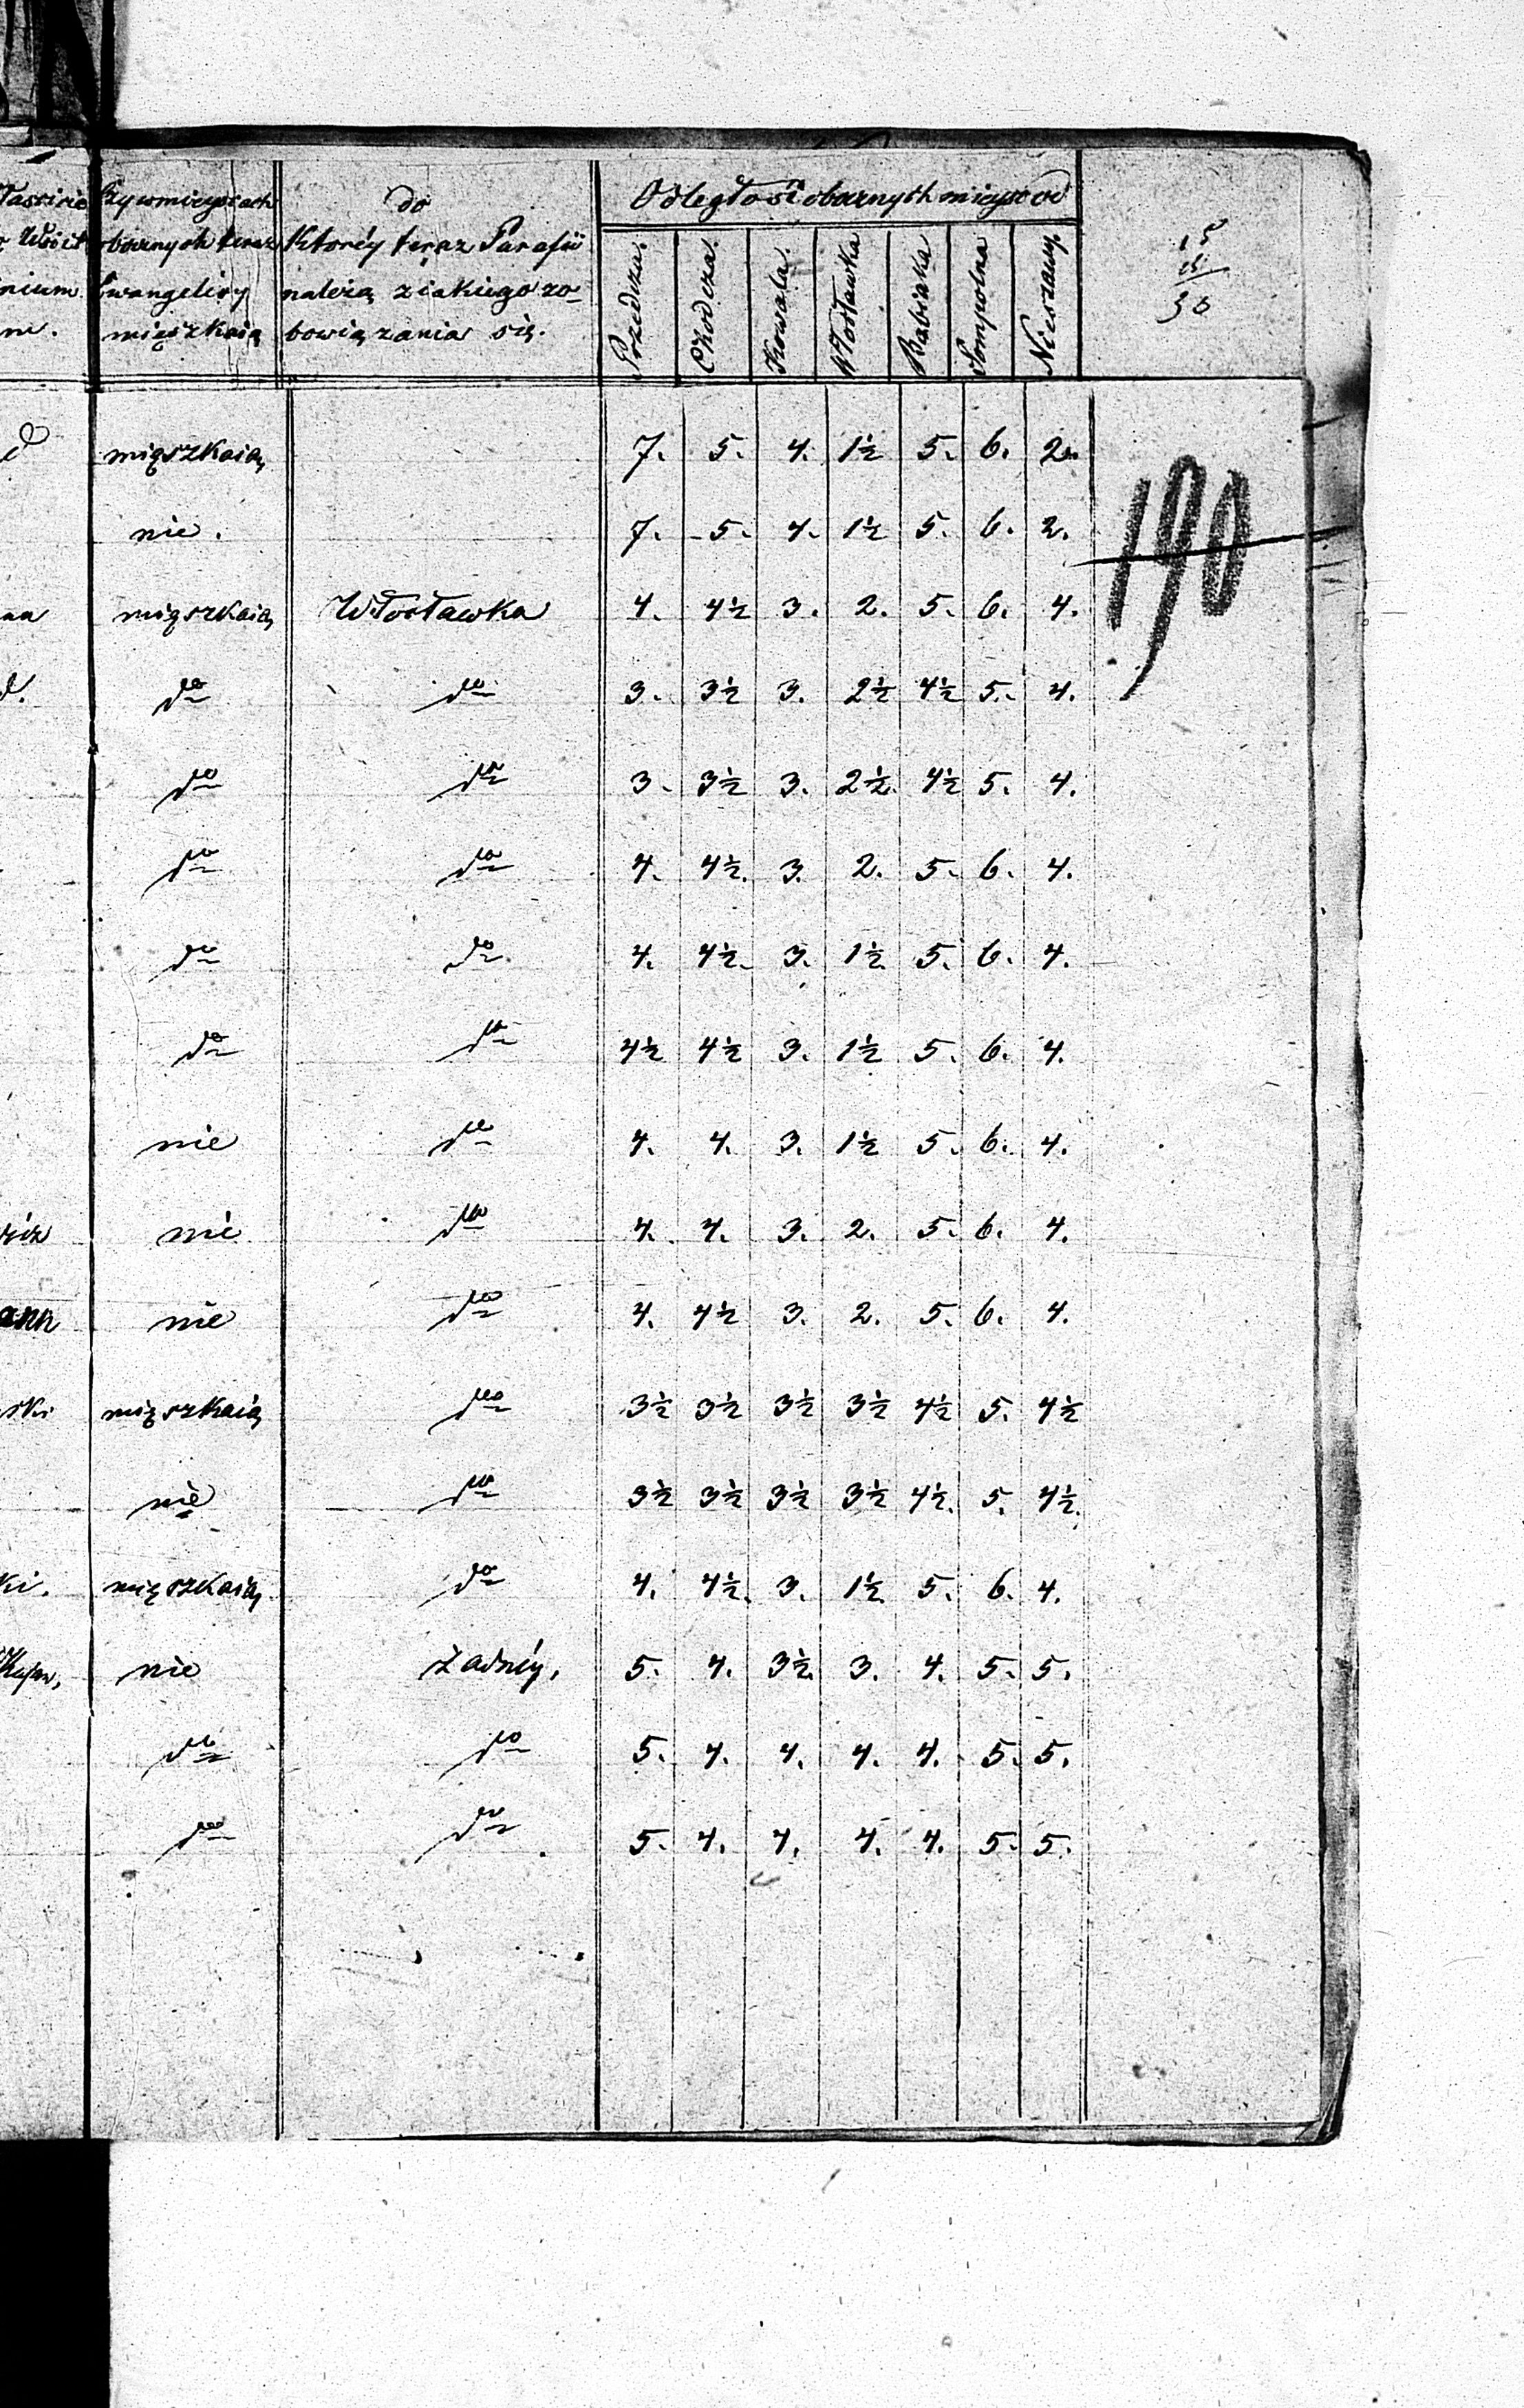 Czy w mieyscach obocznych teraz Ewangelicy mięszkaią
do Któréy teraz Parafii należą z iakiego zobowiązania się.
Odległość obocznych mieysc od
Przedcza. Chodcza. Kowala. Włocławka Babiaka Sompolna Nieszawy.
15
15
30
190
mięszkaią 7. 5. 4. 1½ 5. 6. 2.
nie. 7. 5. 4. 1½ 5. 6. 2.
mięszkaią Włocławka 4. 4½ 3. 2. 5. 6. 4.
do do 3. 3½ 3. 2½ 4½ 5. 4.
do do 3. 3½ 3. 2½ 4½ 5. 4.
do do 4. 4½ 3. 2. 5. 6. 4.
do do 4. 4½ 3. 1½ 5. 6. 4.
do do 4½ 4½ 3. 1½ 5. 6. 4.
nie do 4. 4. 3. 1½ 5. 6. 4.
nie do 4. 4. 3. 2. 5. 6. 4.
ann nie do 4. 4½ 3. 2. 5. 6. 4.
ski mięszkaią do 3½ 3½ 3½ 3½ 4½ 5. 4½
nie do 3½ 3½ 3½ 3½ 4½ 5. 4½
ki. mięszkaią do 4. 4½ 3. 1½ 5. 6. 4.
nie żadnéy. 5. 4. 3½ 3. 4. 5. 5.
do do 5. 4. 4. 4. 4. 5. 5.
do do 5. 4. 4. 4. 4. 5. 5.